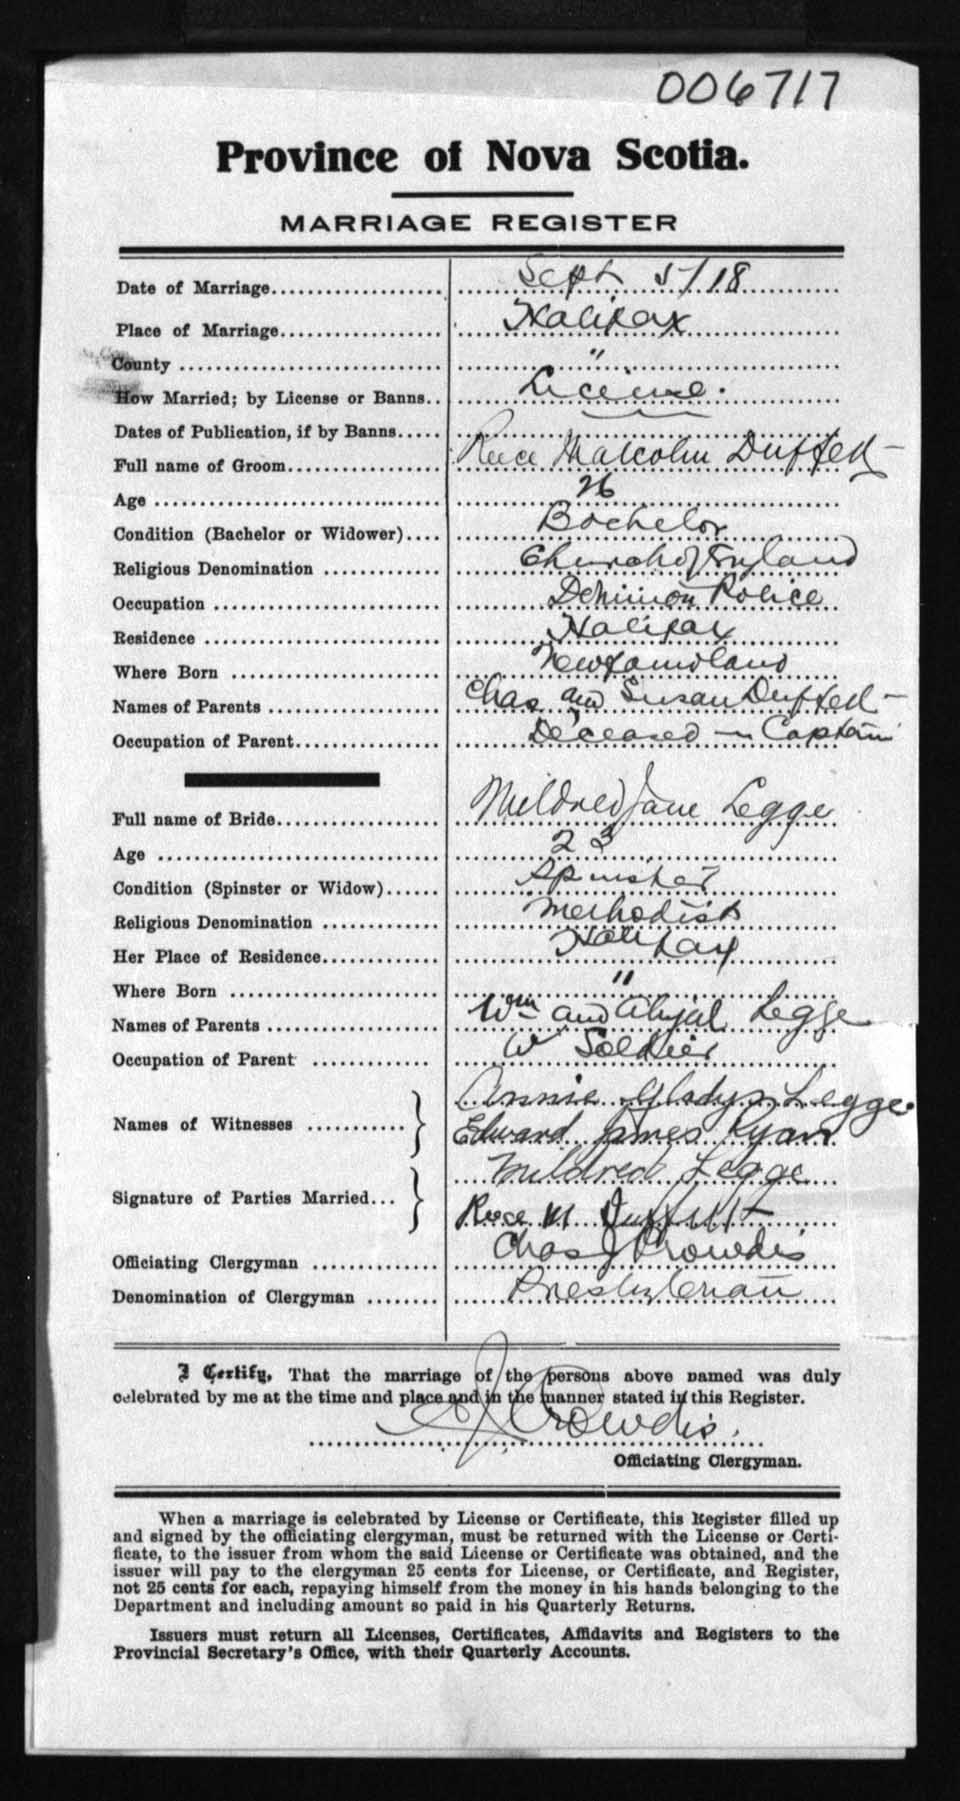 006717
Province of Nova Scotia.
MARRIAGE REGISTER
Date of Marriage Sept 5/18
Place of Marriage Halifax
County "
How Married; by License or Banns License.
Dates of Publication, if by Banns
Full name of Groom Reece Malcolm Duffett
Age 26
Condition (Bachelor or Widower) Bachelor
Religious Denomination Church of England
Occupation Dominion Police
Residence Halifax
Where Born Newfoundland
Names of Parents Chas and Susan Duffett
Occupation of Parent Deceased — Captain
Full name of Bride Mildred Jane Legge
Age 23
Condition (Spinster or Widow) Spinster
Religious Denomination Methodist
Her Place of Residence Halifax
Where Born "
Names of Parents Wm and Abijal Legge
Occupation of Parent Soldier
Names of Witnesses Annie Gladys Legge.
Edward James Ryan
Signature of Parties Married Mildred Legge
Reece M Duffett
Officiating Clergyman Chas J Crowdis
Denomination of Clergyman Presbyterian
I Certify, That the marriage of the persons above named was duly
celebrated by me at the time and place and in the manner stated in this Register.
C J Crowdis.
Officiating Clergyman.
When a marriage is celebrated by License or Certificate, this Register filled up
and signed by the officiating clergyman, must be returned with the License or Certi-
ficate, to the issuer from whom the said License or Certificate was obtained, and the
issuer will pay to the clergyman 25 cents for License, or Certificate, and Register,
not 25 cents for each, repaying himself from the money in his hands belonging to the
Department and including amount so paid in his Quarterly Returns.
Issuers must return all Licenses, Certificates, Affidavits and Registers to the
Provincial Secretary's Office, with their Quarterly Accounts.